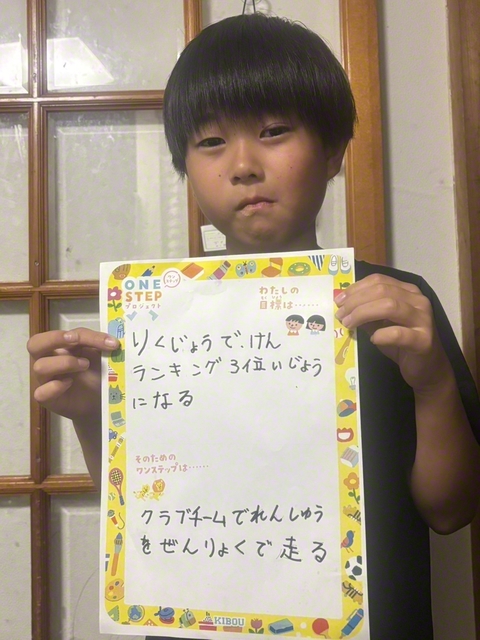 ONE
STEP
プロジェクト
わたしの
目標は……
りくじょうで、けん
ランキング3位いじょう
になる
そのための
ワンステップは……
クラブチームでれんしゅう
をぜんりょくで走る
KIBOU